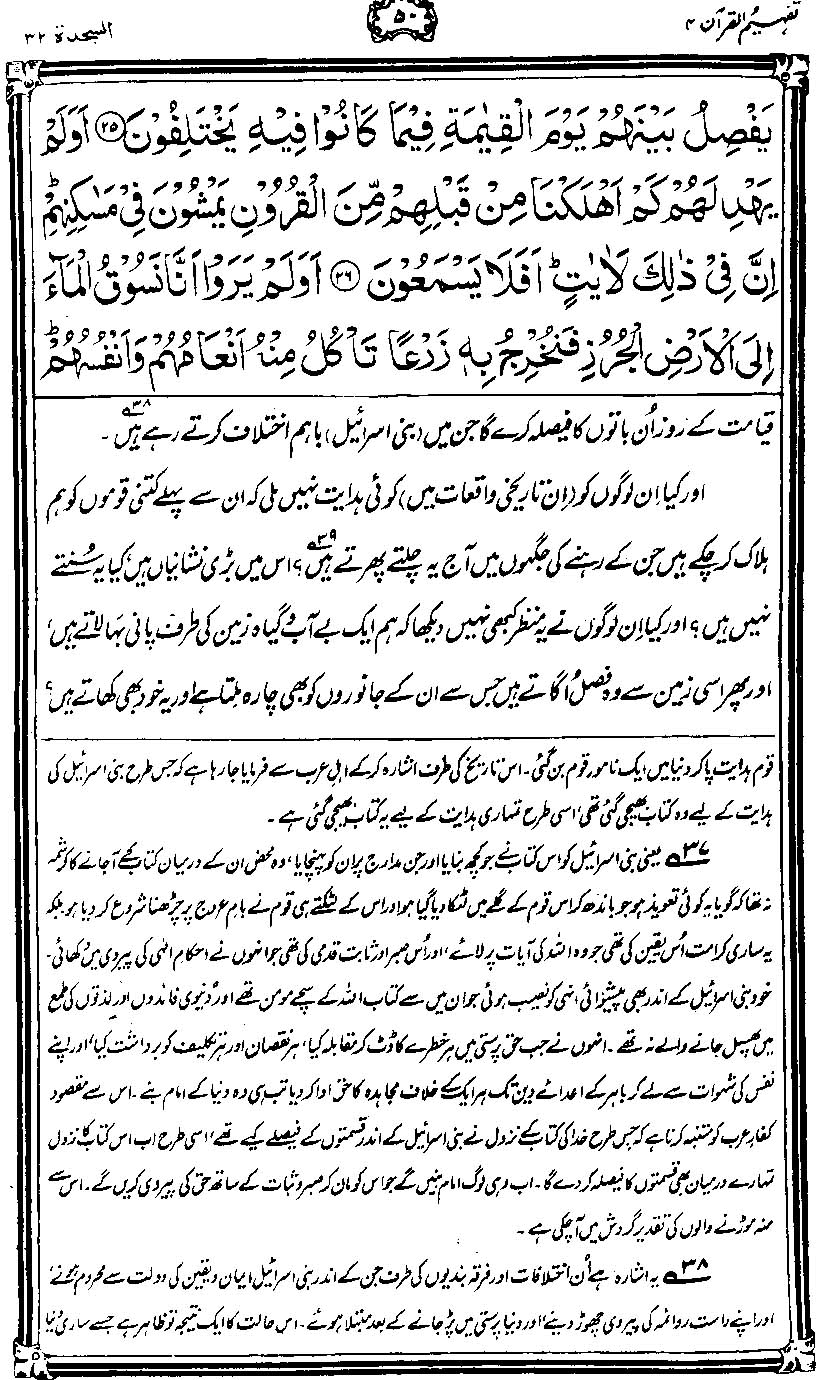 تفہیم القرآن ۴
۵۰
السجدۃ ۳۲
یَفْصِلُ بَیْنَهُمْ یَوْمَ الْقِیٰمَةِ فِیْمَا كَانُوْا فِیْهِ یَخْتَلِفُوْنَ ۲۵ اَوَلَمْ
یَهْدِ لَهُمْ كَمْ اَهْلَكْنَا مِنْ قَبْلِهِمْ مِّنَ الْقُرُوْنِ یَمْشُوْنَ فِیْ مَسٰكِنِهِمْ ؕ
اِنَّ فِیْ ذٰلِكَ لَاٰیٰتٍ ؕ اَفَلَا یَسْمَعُوْنَ ۲۶ اَوَلَمْ یَرَوْا اَنَّا نَسُوْقُ الْمَآءَ
اِلَی الْاَرْضِ الْجُرُزِ فَنُخْرِجُ بِهٖ زَرْعًا تَاْكُلُ مِنْهُ اَنْعَامُهُمْ وَاَنْفُسُهُمْ ؕ
قیامت کے روز اُن باتوں کا فیصلہ کرے گا جن میں (بنی اسرائیل) باہم اختلاف کرتے رہے ہیں۳۸۔
اور کیا اِن لوگوں کو (اِن تاریخی واقعات میں) کوئی ہدایت نہیں ملی کہ ان سے پہلے کتنی قوموں کو ہم
ہلاک کر چکے ہیں جن کے رہنے کی جگہوں میں آج یہ چلتے پھرتے ہیں۳۹؟ اس میں بڑی نشانیاں ہیں، کیا یہ سُنتے
نہیں ہیں؟ اور کیا اِن لوگوں نے یہ منظر کبھی نہیں دیکھا کہ ہم ایک بے آب و گیاہ زمین کی طرف پانی بہا لاتے ہیں،
اور پھر اسی زمین سے وہ فصل اُگاتے ہیں جس سے ان کے جانوروں کو بھی چارہ ملتا ہے اور یہ خود بھی کھاتے ہیں؟
قوم ہدایت پا کر دنیا میں ایک نامور قوم بن گئی۔ اس تاریخ کی طرف اشارہ کر کے اہلِ عرب سے فرمایا جا رہا ہے کہ جس طرح بنی اسرائیل کی
ہدایت کے لیے وہ کتاب بھیجی گئی تھی، اسی طرح تمہاری ہدایت کے لیے یہ کتاب بھیجی گئی ہے۔
۳۷ یعنی بنی اسرائیل کو اس کتاب نے جو کچھ بنایا اور جن مدارج پر ان کو پہنچایا، وہ محض ان کے درمیان کتاب کے آ جانے کا کرشمہ
نہ تھا کہ گویا یہ کوئی تعویذ ہو جو باندھ کر اس قوم کے گلے میں لٹکا دیا گیا ہو اور اس کے لٹکتے ہی قوم نے بامِ عروج پر چڑھنا شروع کر دیا ہو، بلکہ
یہ ساری کرامت اُس یقین کی تھی جو وہ اللہ کی آیات پر لائے، اور اُس صبر اور ثابت قدمی کی تھی جو انھوں نے احکام الٰہی کی پیروی میں دکھائی۔
خود بنی اسرائیل کے اندر بھی پیشوائی انہی کو نصیب ہوئی جو ان میں سے کتاب اللہ کے سچے مومن تھے اور دُنیوی فائدوں اور لذتوں کی طمع
میں پھسل جانے والے نہ تھے۔ انھوں نے جب حق پرستی میں ہر خطرے کا ڈٹ کر مقابلہ کیا، ہر نقصان اور ہر تکلیف کو برداشت کیا، اور اپنے
نفس کی شہوات سے لے کر باہر کے اعدائے دین تک ہر ایک کے خلاف مجاہدہ کا حق ادا کر دیا تب ہی وہ دنیا کے امام بنے۔ اس سے مقصود
کفارِ عرب کو متنبہ کرنا ہے کہ جس طرح خدا کی کتاب کے نزول نے بنی اسرائیل کے اندر قسمتوں کے فیصلے کیے تھے، اسی طرح اب اس کتاب کا نزول
تمہارے درمیان بھی قسمتوں کا فیصلہ کر دے گا۔ اب وہی لوگ امام بنیں گے جو اس کو مان کر صبر و ثبات کے ساتھ حق کی پیروی کریں گے۔ اس سے
منہ موڑنے والوں کی تقدیر گردش میں آ چکی ہے۔
۳۸ یہ اشارہ ہے اُن اختلافات اور فرقہ بندیوں کی طرف جن کے اندر بنی اسرائیل ایمان و یقین کی دولت سے محروم ہونے،
اور اپنے راست رو ائمہ کی پیروی چھوڑ دینے، اور دنیا پرستی میں پڑ جانے کے بعد مبتلا ہوئے۔ اس حالت کا ایک نتیجہ تو ظاہر ہے جسے ساری دُنیا